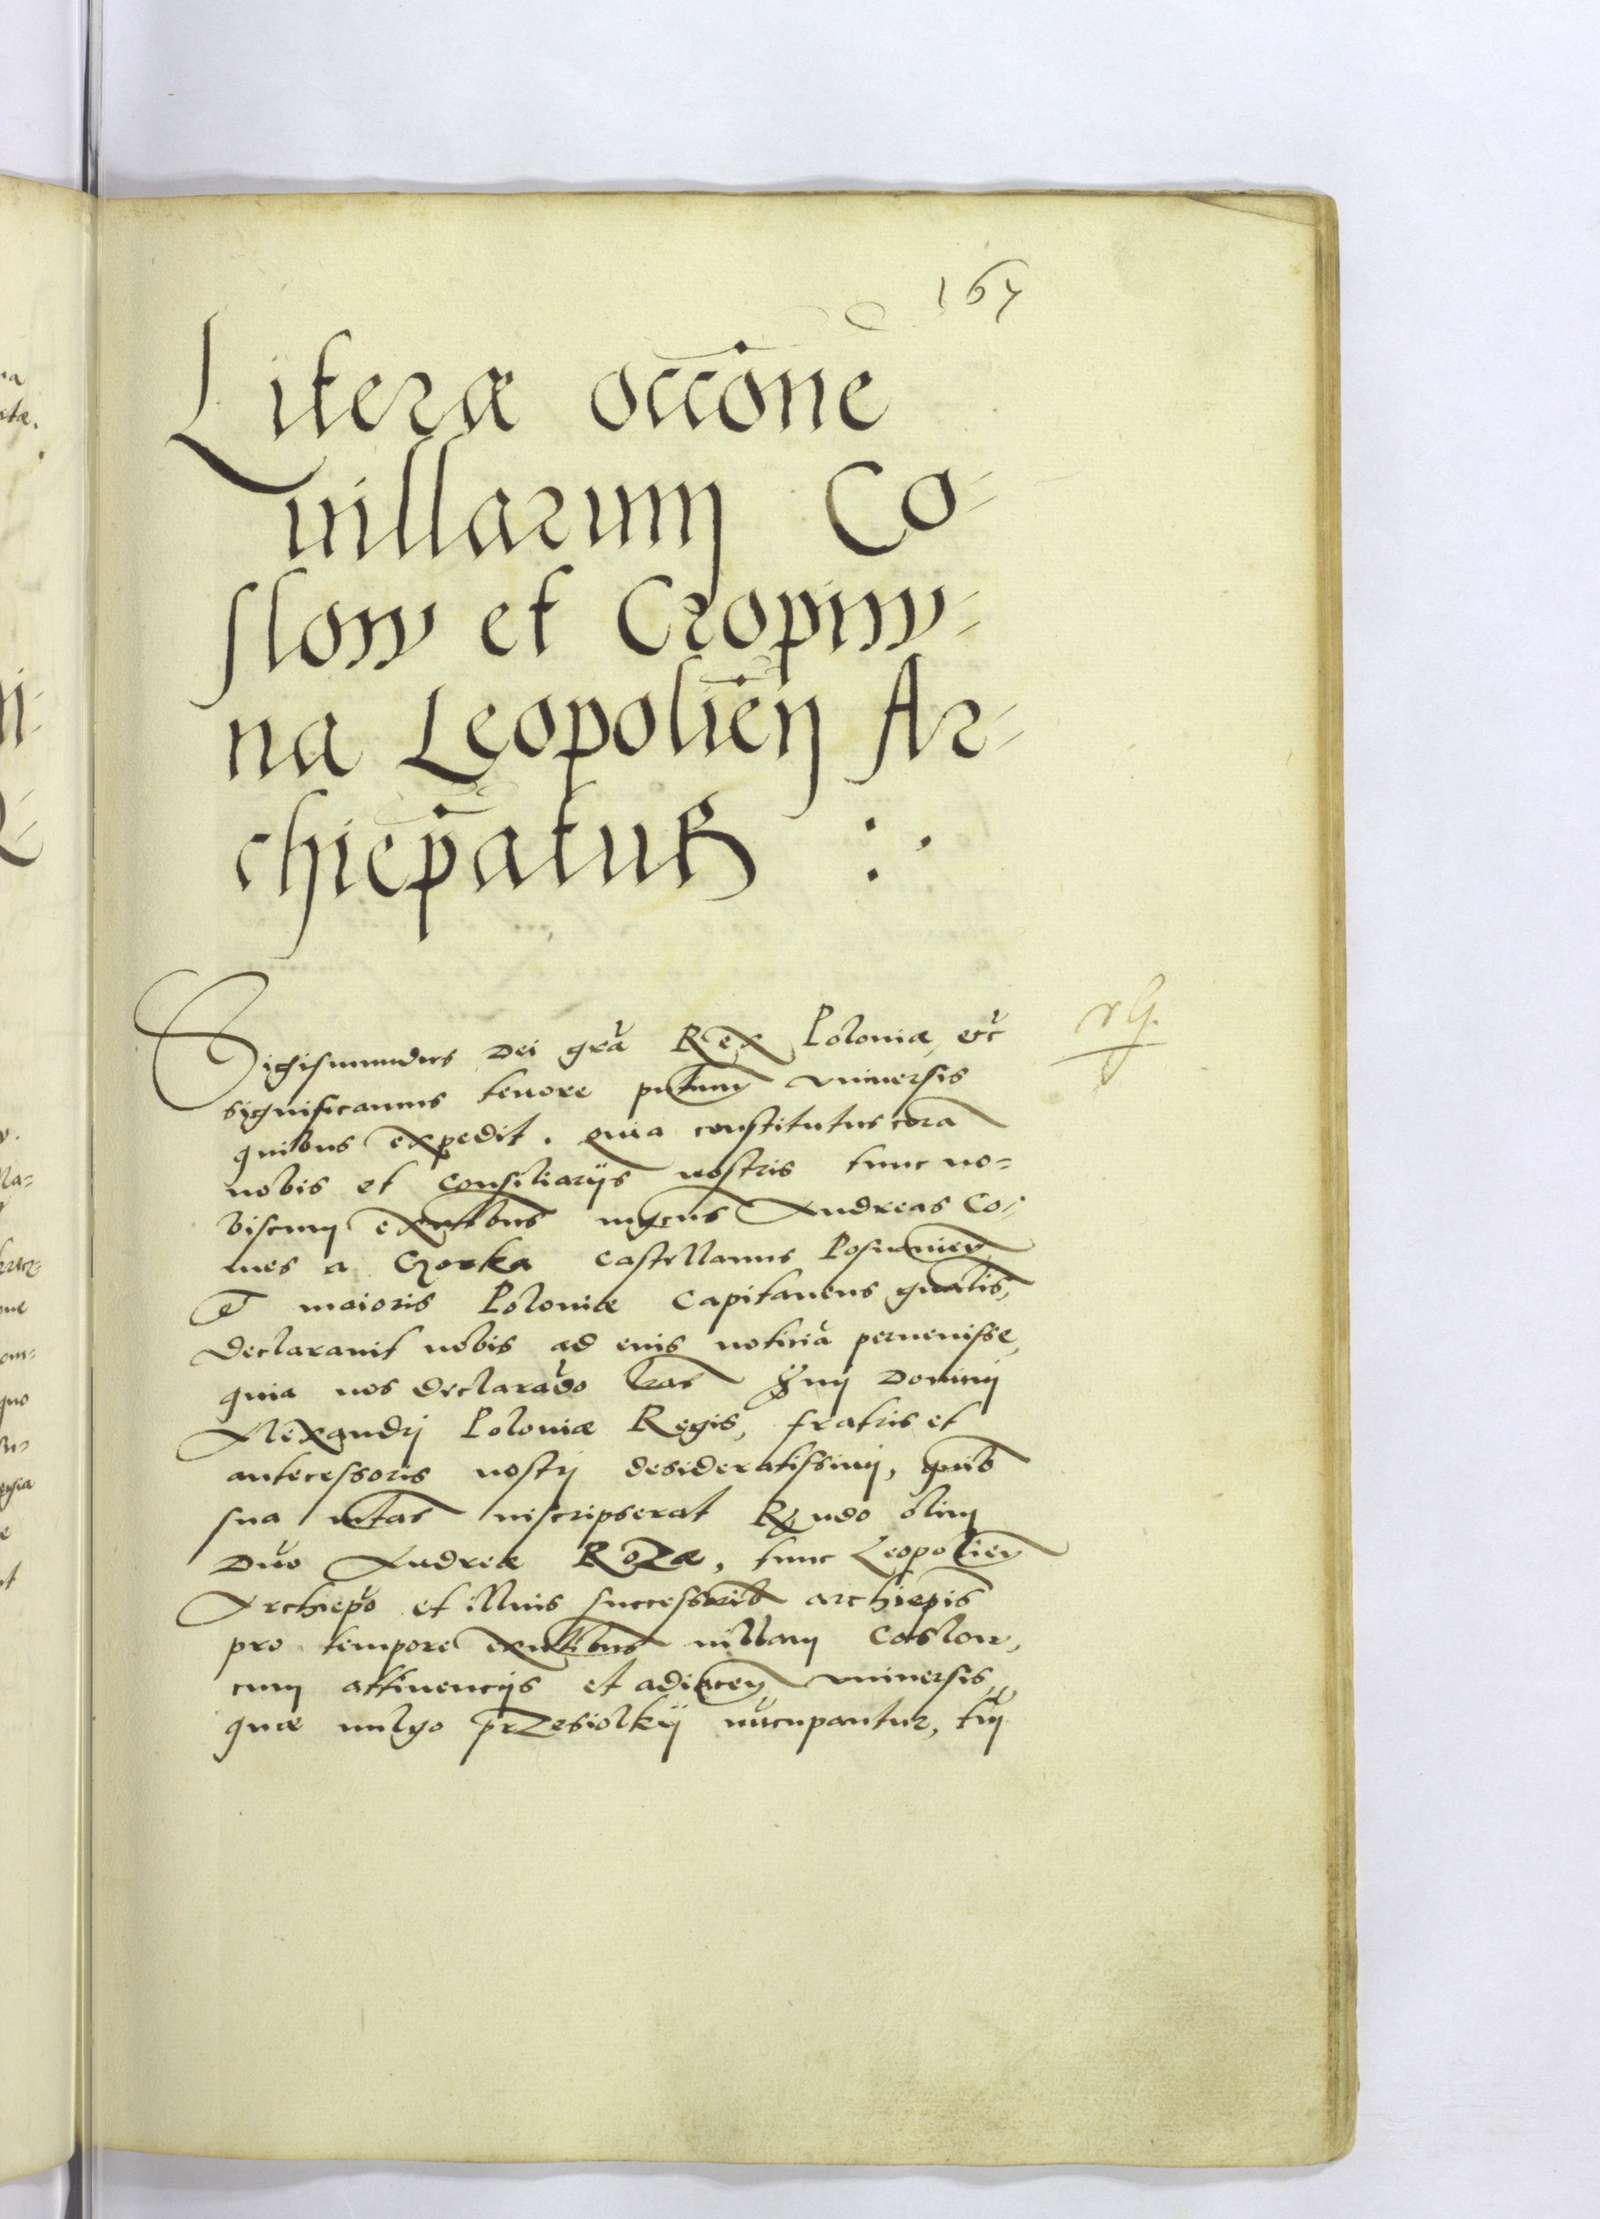 167
Literæ occōne
uillarum Co-
slow et Cropiw-
na Leopolień Ar-
chiep̄atus :·
Sigismundus Dei gr̄a Rex Poloniæ, etc
significamus tenore pn̄tium vniuersis
quibus expedit. quia constitutus corā
nobis et consiliarijs nostris tunc no=
biscum exn̄tibus mgcus Andreas Co-
mes a Gorka castellanus Posnanień
et maioris Poloniæ Capitaneus gn̄alis,
declarauit nobis ad eius noticiā peruenisse,
quia nos declarādo lr̄as Domini
Alexandrj Poloniæ Regis, fratris et
antecessoris nostrj desideratissimj, quib
sua mtas inscripserat Rndo olim
Dn̄o Andreæ Rozæ, tunc Leopolień
Archiep̄o et illius successorib archiepis
pro tempore exn̄tibus uillam Coslow,
cum attinencijs et adiaceń vniuersis,
quæ uulgo przesiolkij nūcupantur,